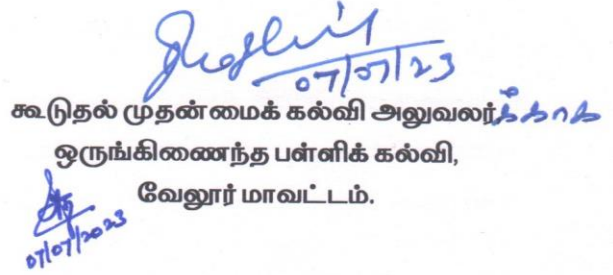 07/07/23
கூடுதல் முதன்மைக் கல்வி அலுவலர்க்காக
ஒருங்கிணைந்த பள்ளிக் கல்வி,
வேலூர் மாவட்டம்.
07/07/2023